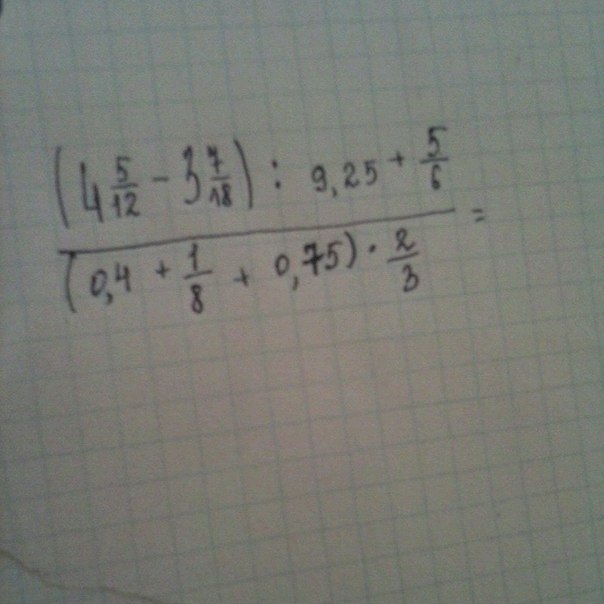 (4 5/12 - 3 7/18) : 9,25 + 5/6
(0,4 + 1/8 + 0,75) · 2/3 =